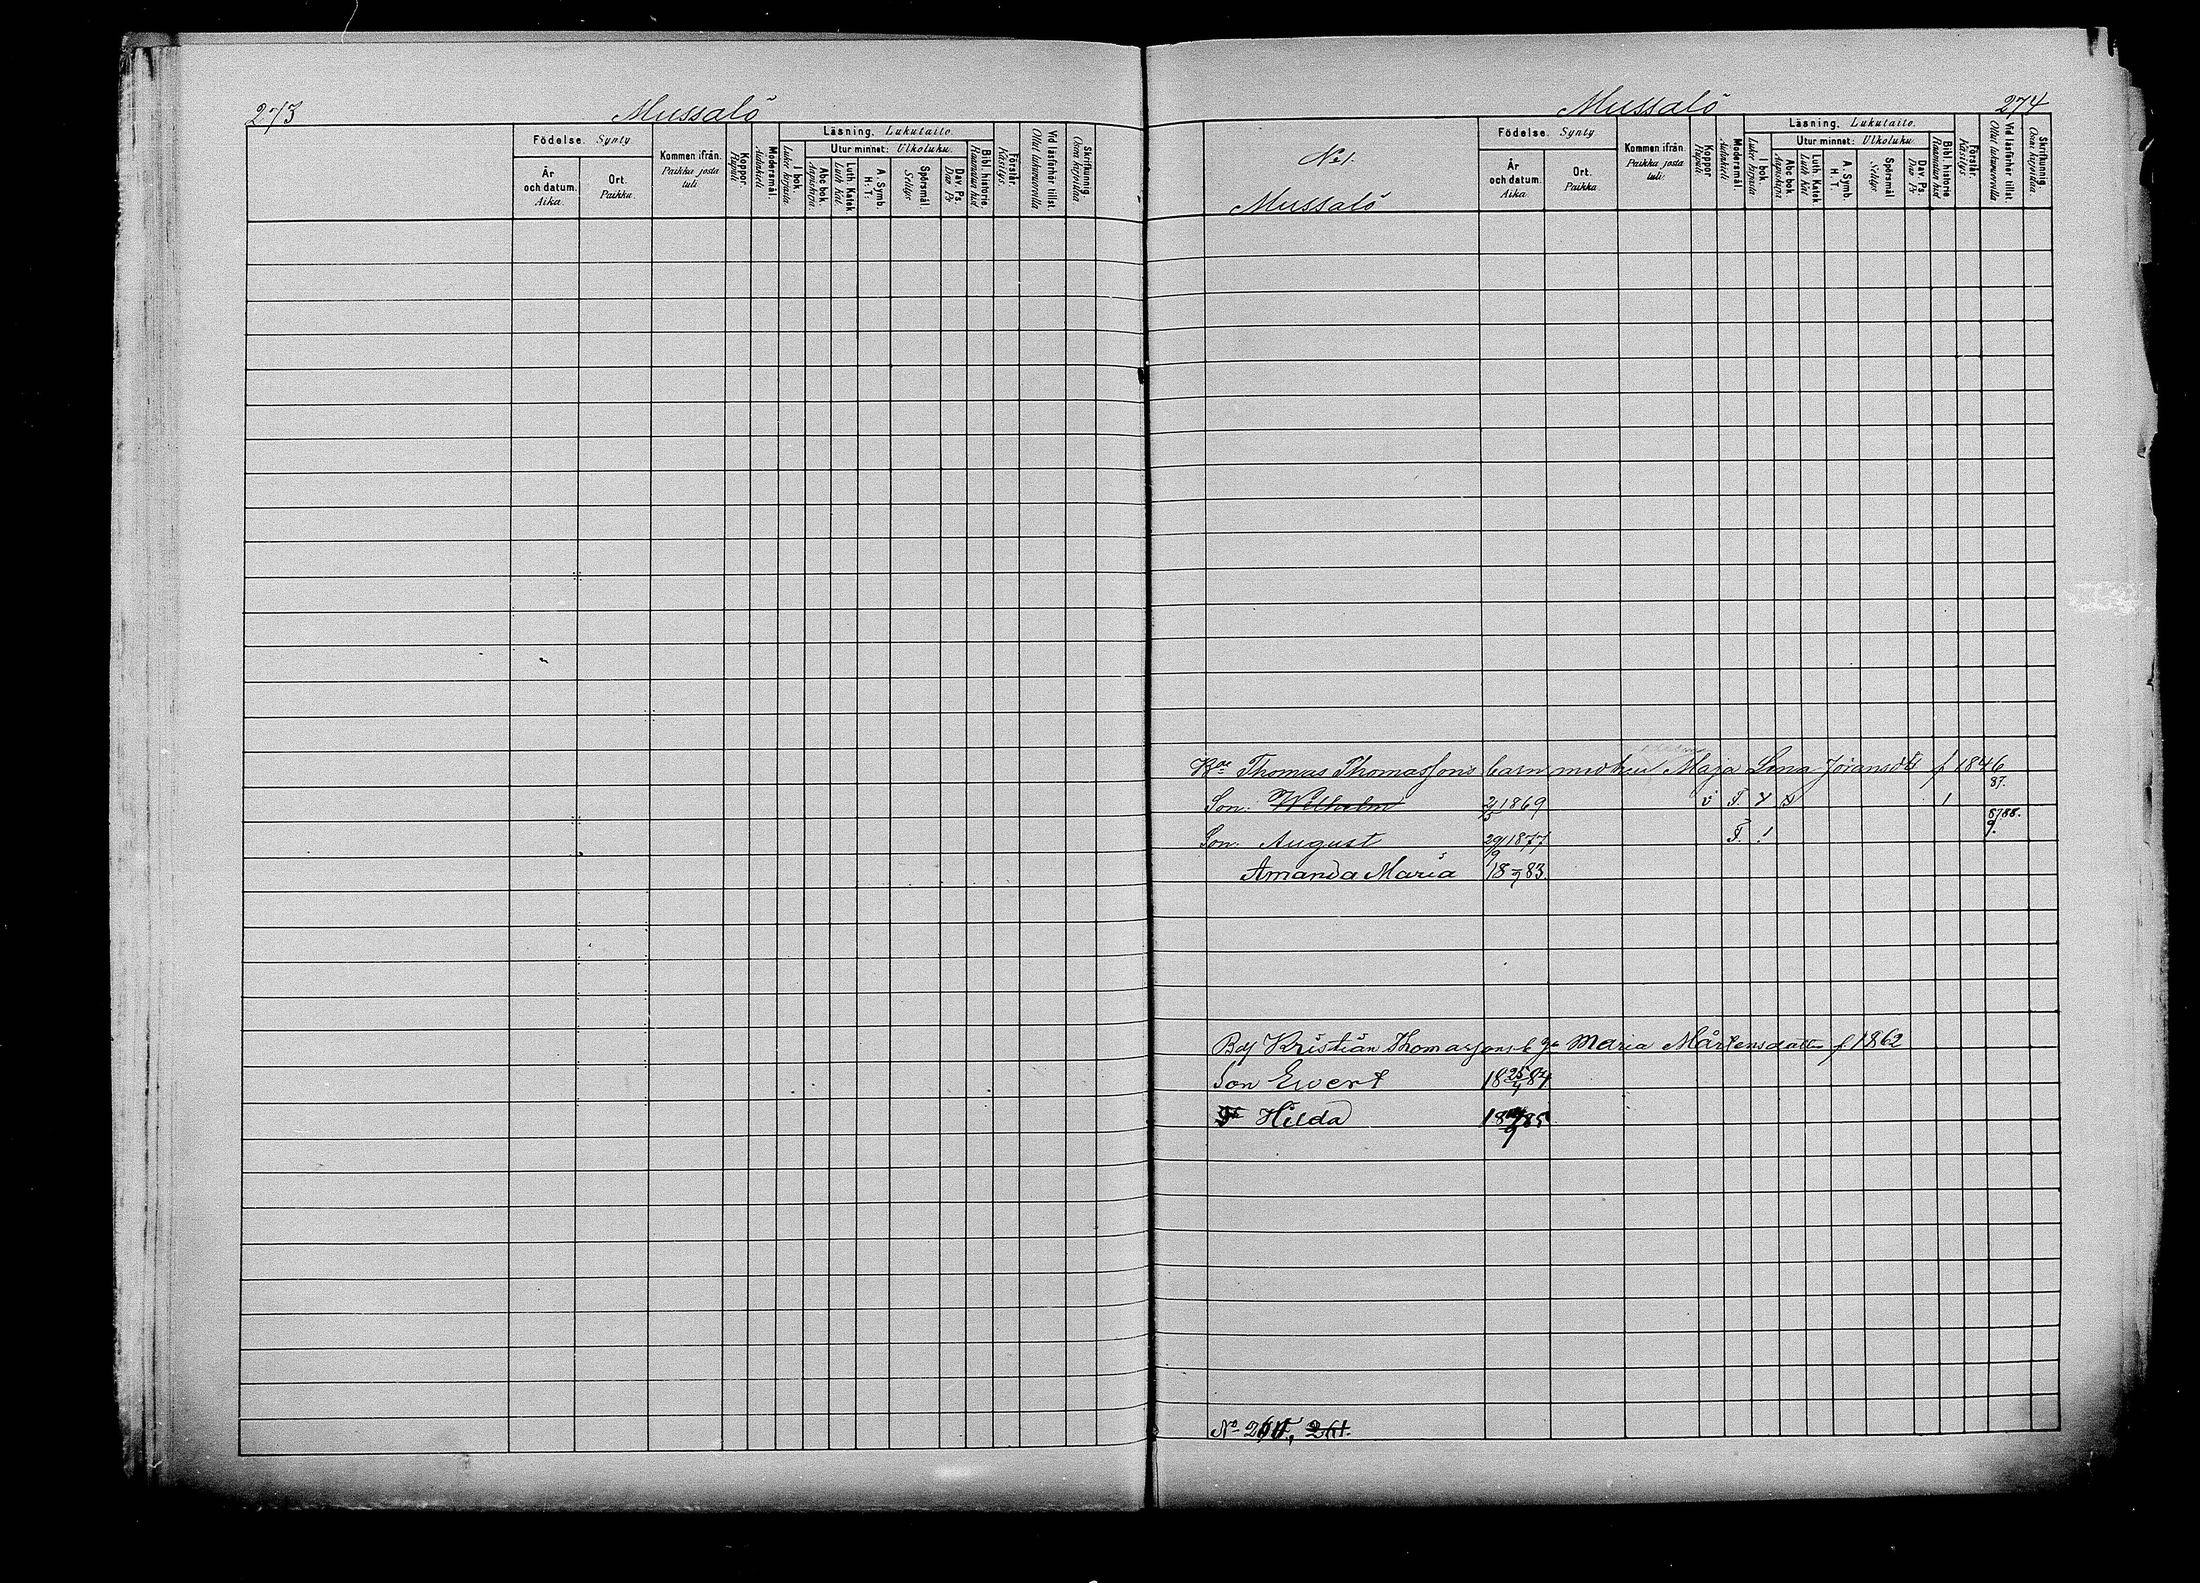 273 Mussalö
Födelse. Synty
År och datum. Aika.
Ort. Paikka.
Kommen ifrån. Paikka josta tuli
Koppor. Rupuli
Modersmål. Äidinkieli
Läsning. Lukutaito.
I bok. Lukee kirjasta.
Utur minnet: Ulkoluku.
Abc bok. Aapiskirja.
Luth. Katek Luth. Kat.
A. Symb. H. T.
Spörsmål. Selitys
Dav. Ps. Dav. Ps.
Bibl. historie. Raamatun hist.
Förstår. Käsitys.
Vid läsförhör tillst. Ollut lukuvuorolla
Skrifkunnig. Osaa kirjoittaa
Mussalö 274
No 1.
Mussalö
Födelse. Synty
År och datum. Aika.
Ort. Paikka.
Kommen ifrån. Paikka josta tuli:
Koppor Rupuli
Modersmål. Äidinkieli
Läsning. Lukutaito.
I bok. Lukee kirjasta.
Utur minnet: Ulkoluku.
Abc bok Aapiskirja
Luth. Katek Luth. Kat
A. Symb. H. T.
Spörsmål Selitys
Dav. Ps. Dav. Ps.
Bibl. historie. Raamatun hist
Förstår. Käsitys
Vid läsförhör tillst. Ollut lukuvuorolla
Skrifkunnig. Osaa kirjoittaa.
Thomas Thomassons barn med hu Maja Lena Jöransdr f 1846
Son. Wilhelm 2/5 1869 v F. 1 87.
Son. August 29/9 1877 F. ! 8788. 9.
Amanda Maria 18 83.
Kristian Thomassons b. Maria Mårtensdotter f. 1862
Son Ewert 18 25/4 84
Hilda 18 85
No 261.